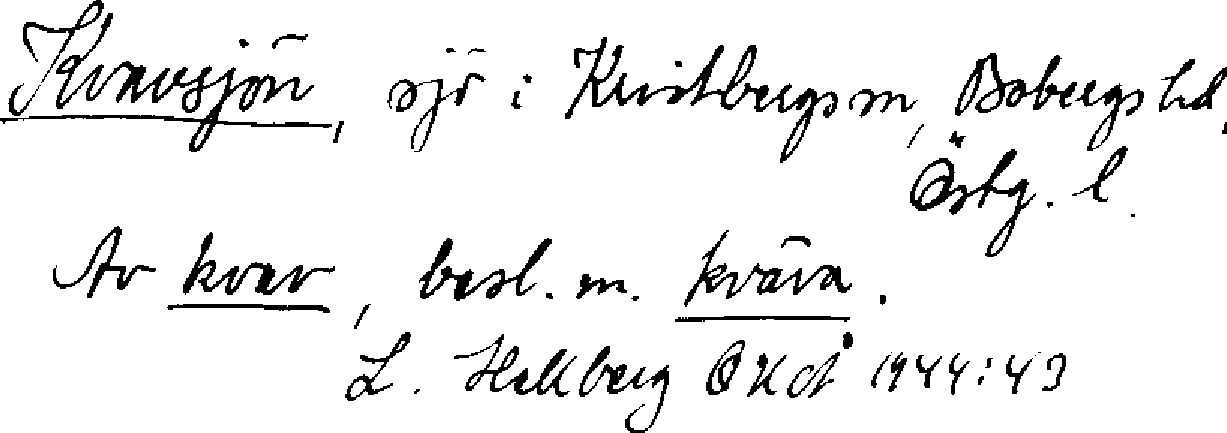 Kvavsjön, sjö i Kristbergs sn, Bobergs hd,
Östg. l.
Av kvav, besl. m. kväva.
L. Hellberg 1944:43